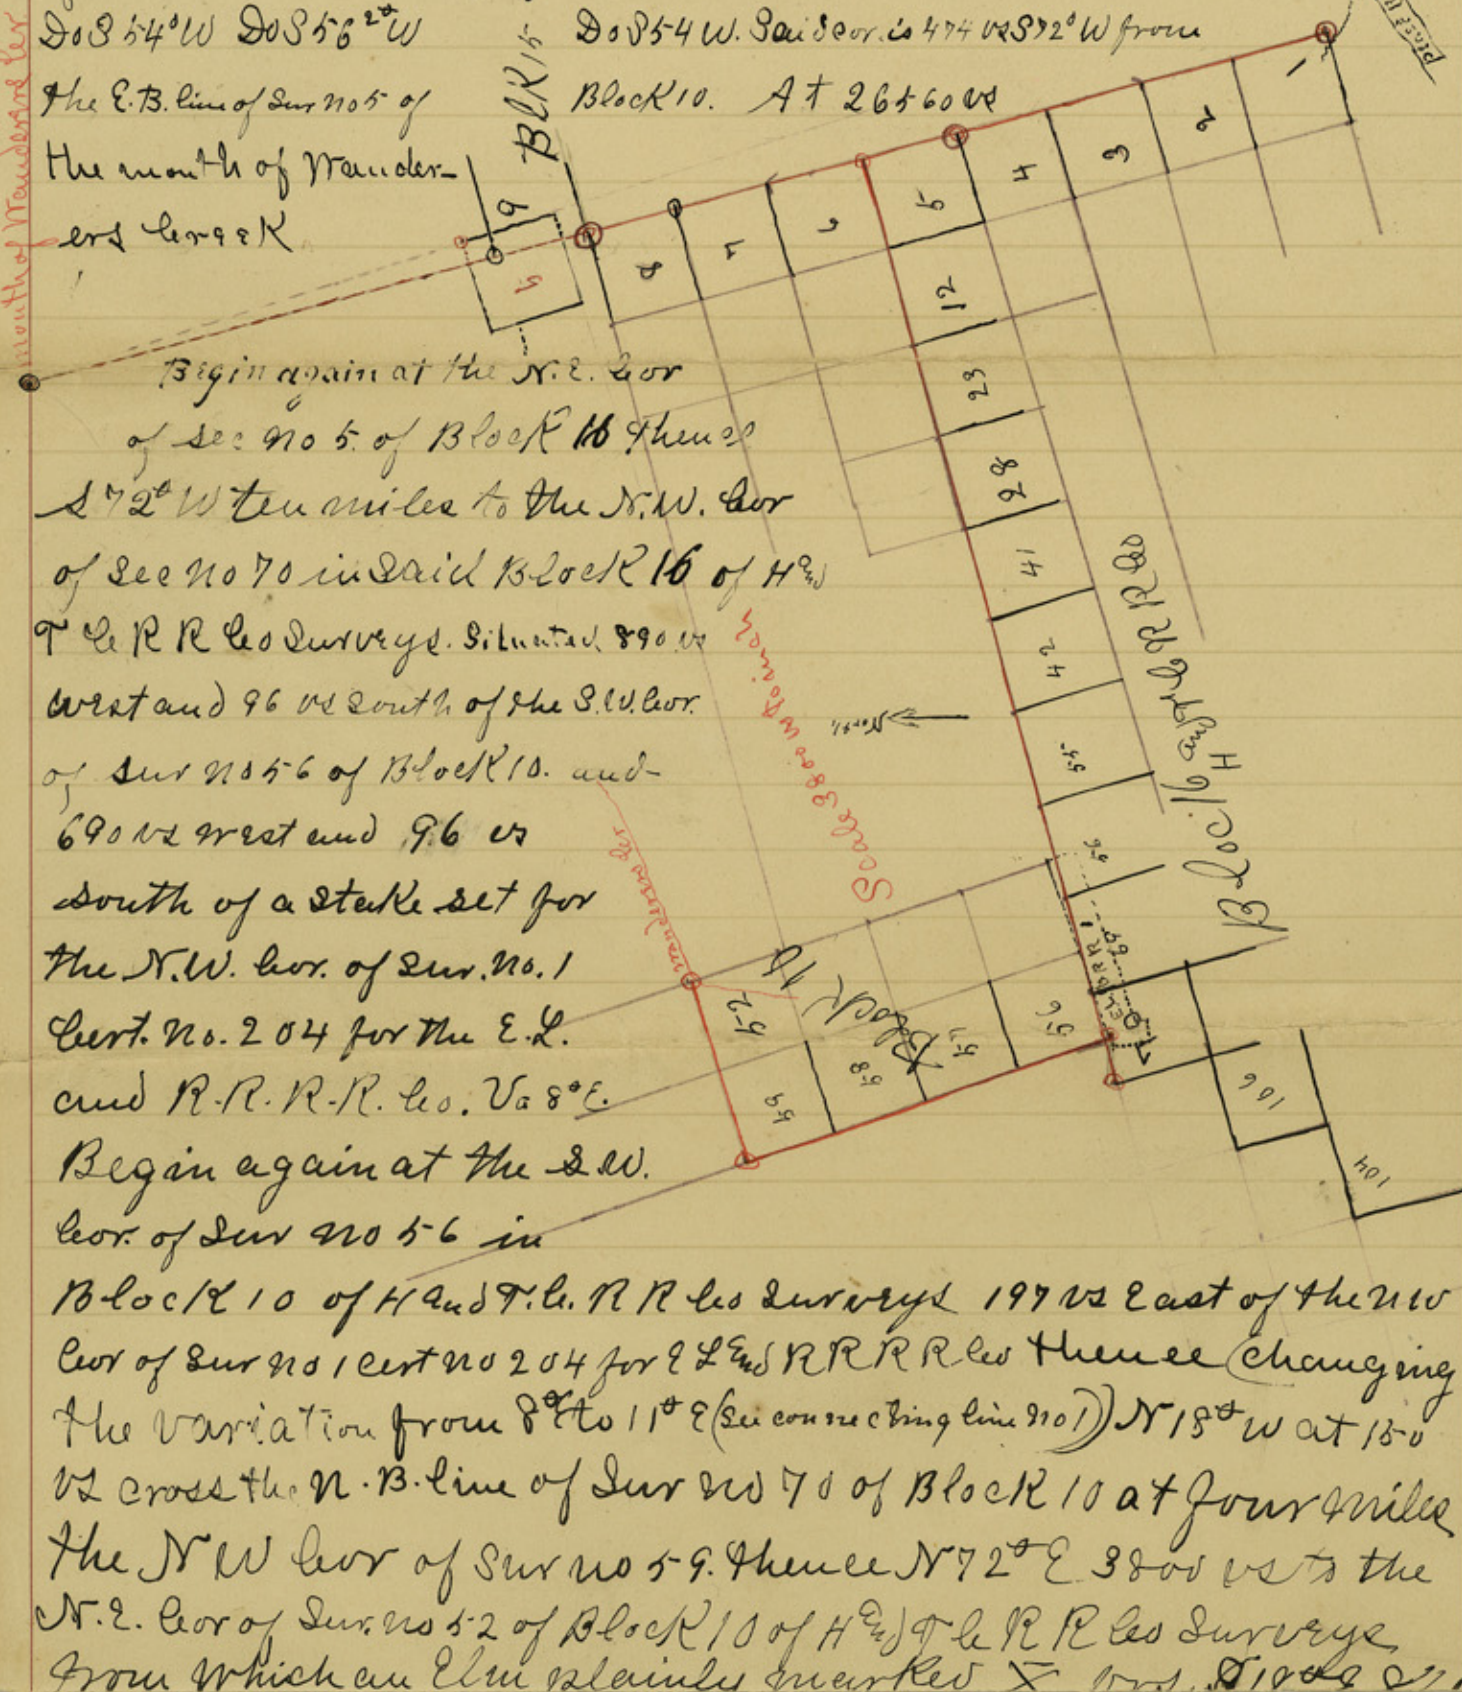 Do S 54° W Do S 56 2° W
the E.B. line of Sur no 5 of
the mouth of Wander-
ers Creek
Do S 54 W. Said cor. is 474 vs S 72° W from
Block 10. At 26560 vs
mouth of Wanderers
BLK 15
1
2
3
4
5
6
7
8
9
5
12
23
28
41
42
55
56
69
Begin again at the N.E. Cor
of sec no 5. of Block 16 thence
S 72° W ten miles to the N.W. Cor
of sec no 70 in said Block 16 of H and
T C R R Co Surveys. Situated 890 vs
west and 96 vs south of the S.W. Cor.
of sur no 56 of Block 10. and
690 vs west and 96 vs
south of a stake set for
the N.W. Cor. of Sur. No. 1
Cert. No. 204 for the E.L.
and R.R. R.R. Co. Va 8° E.
Begin again at the S.W.
Cor. of Sur no 56 in
Block 10 of H and T.C. R R Co Surveys 197 vs East of the NW
Cor of Sur no 1 cert no 204 for E L and R R R R Co thence (changing
the variation from 8° E to 11° E (see connecting line no 1)) N 18° W at 150
vs cross the N.B. line of Sur no 70 of Block 10 at four miles
the N W Cor of Sur no 59. thence N 72° E 3800 vs to the
N.E. Cor of Sur. no 52 of Block 10 of H and T C R R Co Surveys
from which an Elm plainly marked X
Scale 3800 vs to inch
North
Block 16 H and T C R R Co
Block 10
52
59
58
57
56
70
106
104